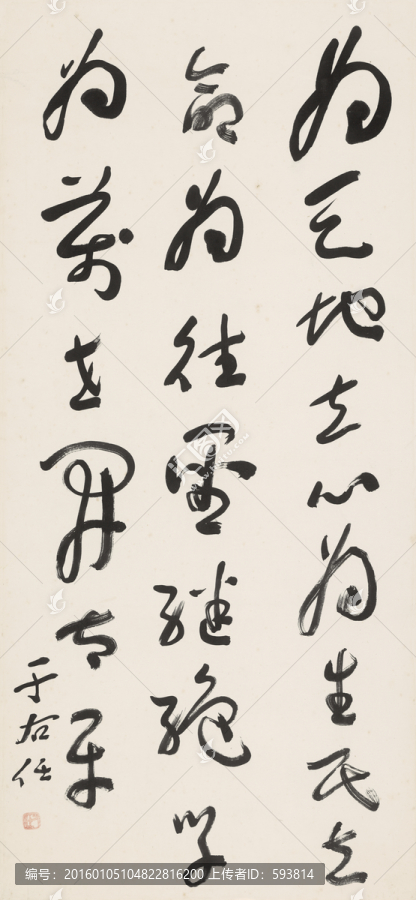 為天地立心為生民立
命為往聖繼絕學
為萬世開太平
于右任
编号：20160105104822816200 上传者ID：593814